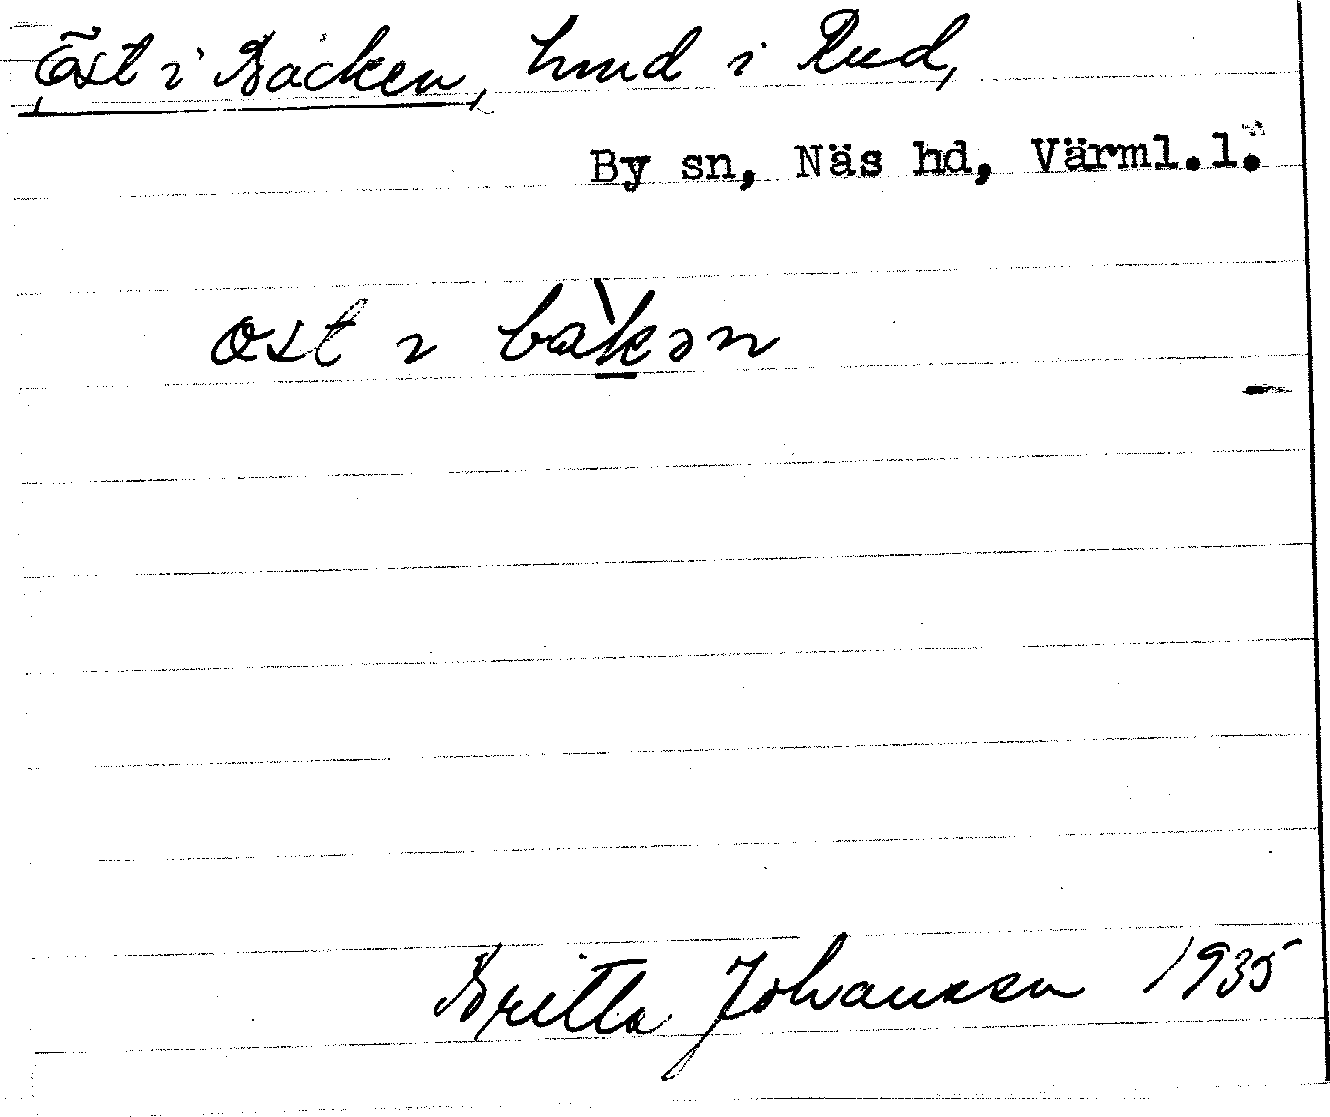 Öst i Backen, lund i Rud,
By sn, Näs hd, Värml.l.
öst ɩ bàkən
Britta Johansson 1935